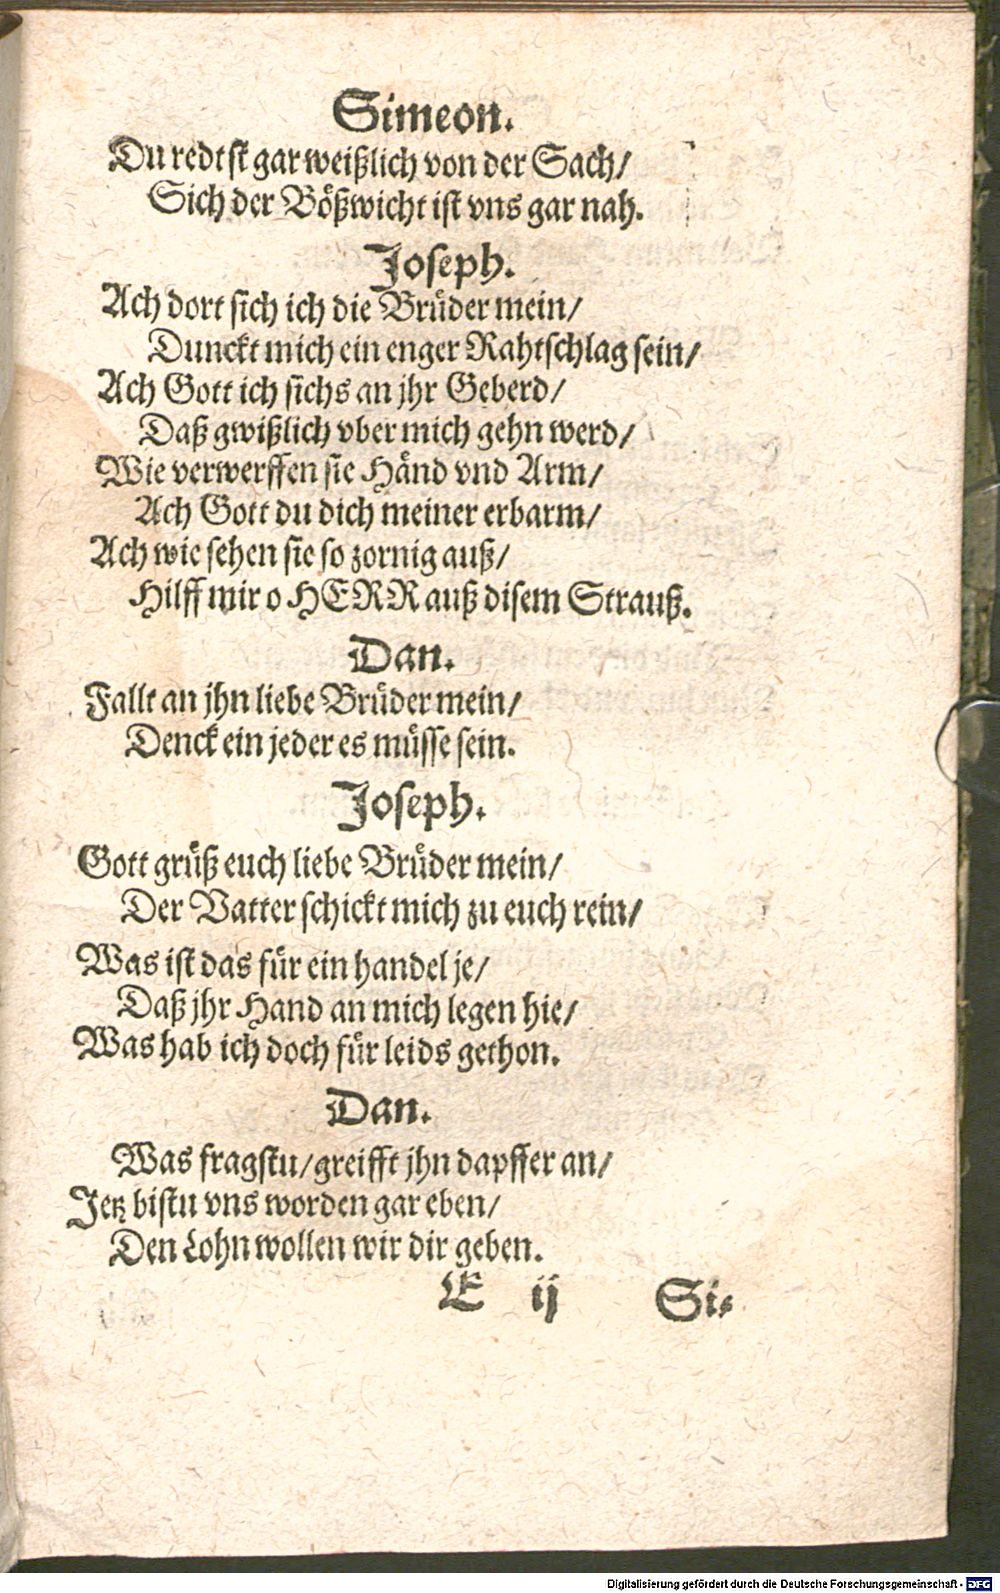 Simeon.
Du redtst gar weißlich von der Sach/
Sich der Bößwicht ist vns gar nah.
Joseph.
Ach dort sich ich die Brüder mein/
Dunckt mich ein enger Rahtschlag sein/
Ach Gott ich sichs an jhr Geberd/
Daß gwißlich vber mich gehn werd/
Wie verwerffen sie Händ vnd Arm/
Ach Gott du dich meiner erbarm/
Ach wie sehen sie so zornig auß/
Hilff mir o HERR auß disem Strauß.
Dan.
Fallt an jhn liebe Brüder mein/
Denck ein jeder es müsse sein.
Joseph.
Gott grüß euch liebe Brüder mein/
Der Vatter schickt mich zu euch rein/
Was ist das für ein handel je/
Daß jhr Hand an mich legen hie/
Was hab ich doch für leids gethon.
Dan.
Was fragstu/greifft jhn dapffer an/
Jetz bistu vns worden gar eben/
Den Lohn wollen wir dir geben.
E ij Si-
Digitalisierung gefördert durch die Deutsche Forschungsgemeinschaft - DFG